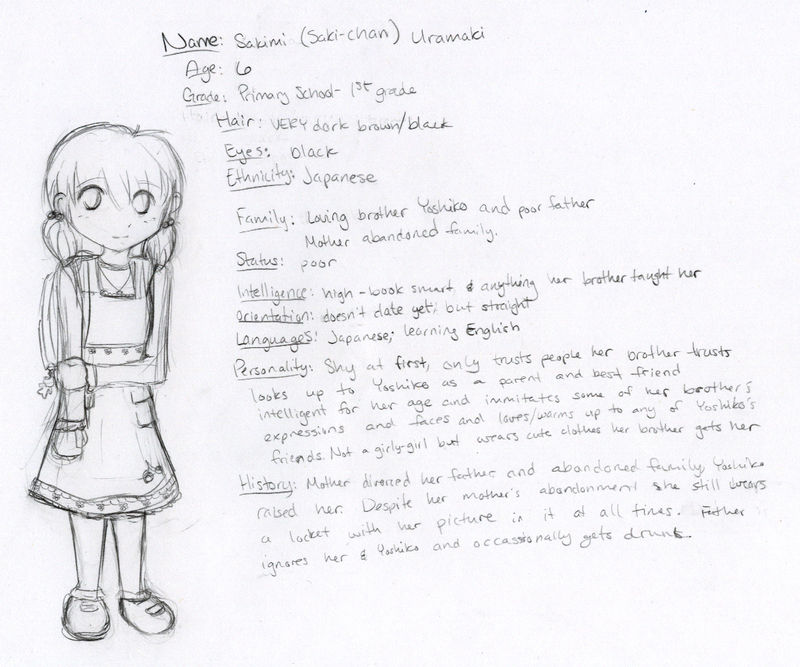 Name: Sakimi (Saki-chan) Uramaki
Age: 6
Grade: Primary School- 1st grade
Hair: VERY dark brown/black
Eyes: black
Ethnicity: Japanese
Family: Loving brother Yoshiko and poor father
Mother abandoned family.
Status: poor
Intelligence: high - book smart & anything her brother taught her
Orientation: doesn't date yet; but straight
Languages: Japanese; learning English
Personality: Shy at first, only trusts people her brother trusts
looks up to Yoshiko as a parent and best friend
intelligent for her age and immitates some of her brother's
expressions and faces and loves/warms up to any of Yoshiko's
friends. Not a girly-girl but wears cute clothes her brother gets her
History: Mother divorced her father, and abandoned family, Yoshiko
raised her. Despite her mother's abandonment she still wears
a locket with her picture in it at all times. Father
ignores her & Yoshiko and occassionally gets drunk.